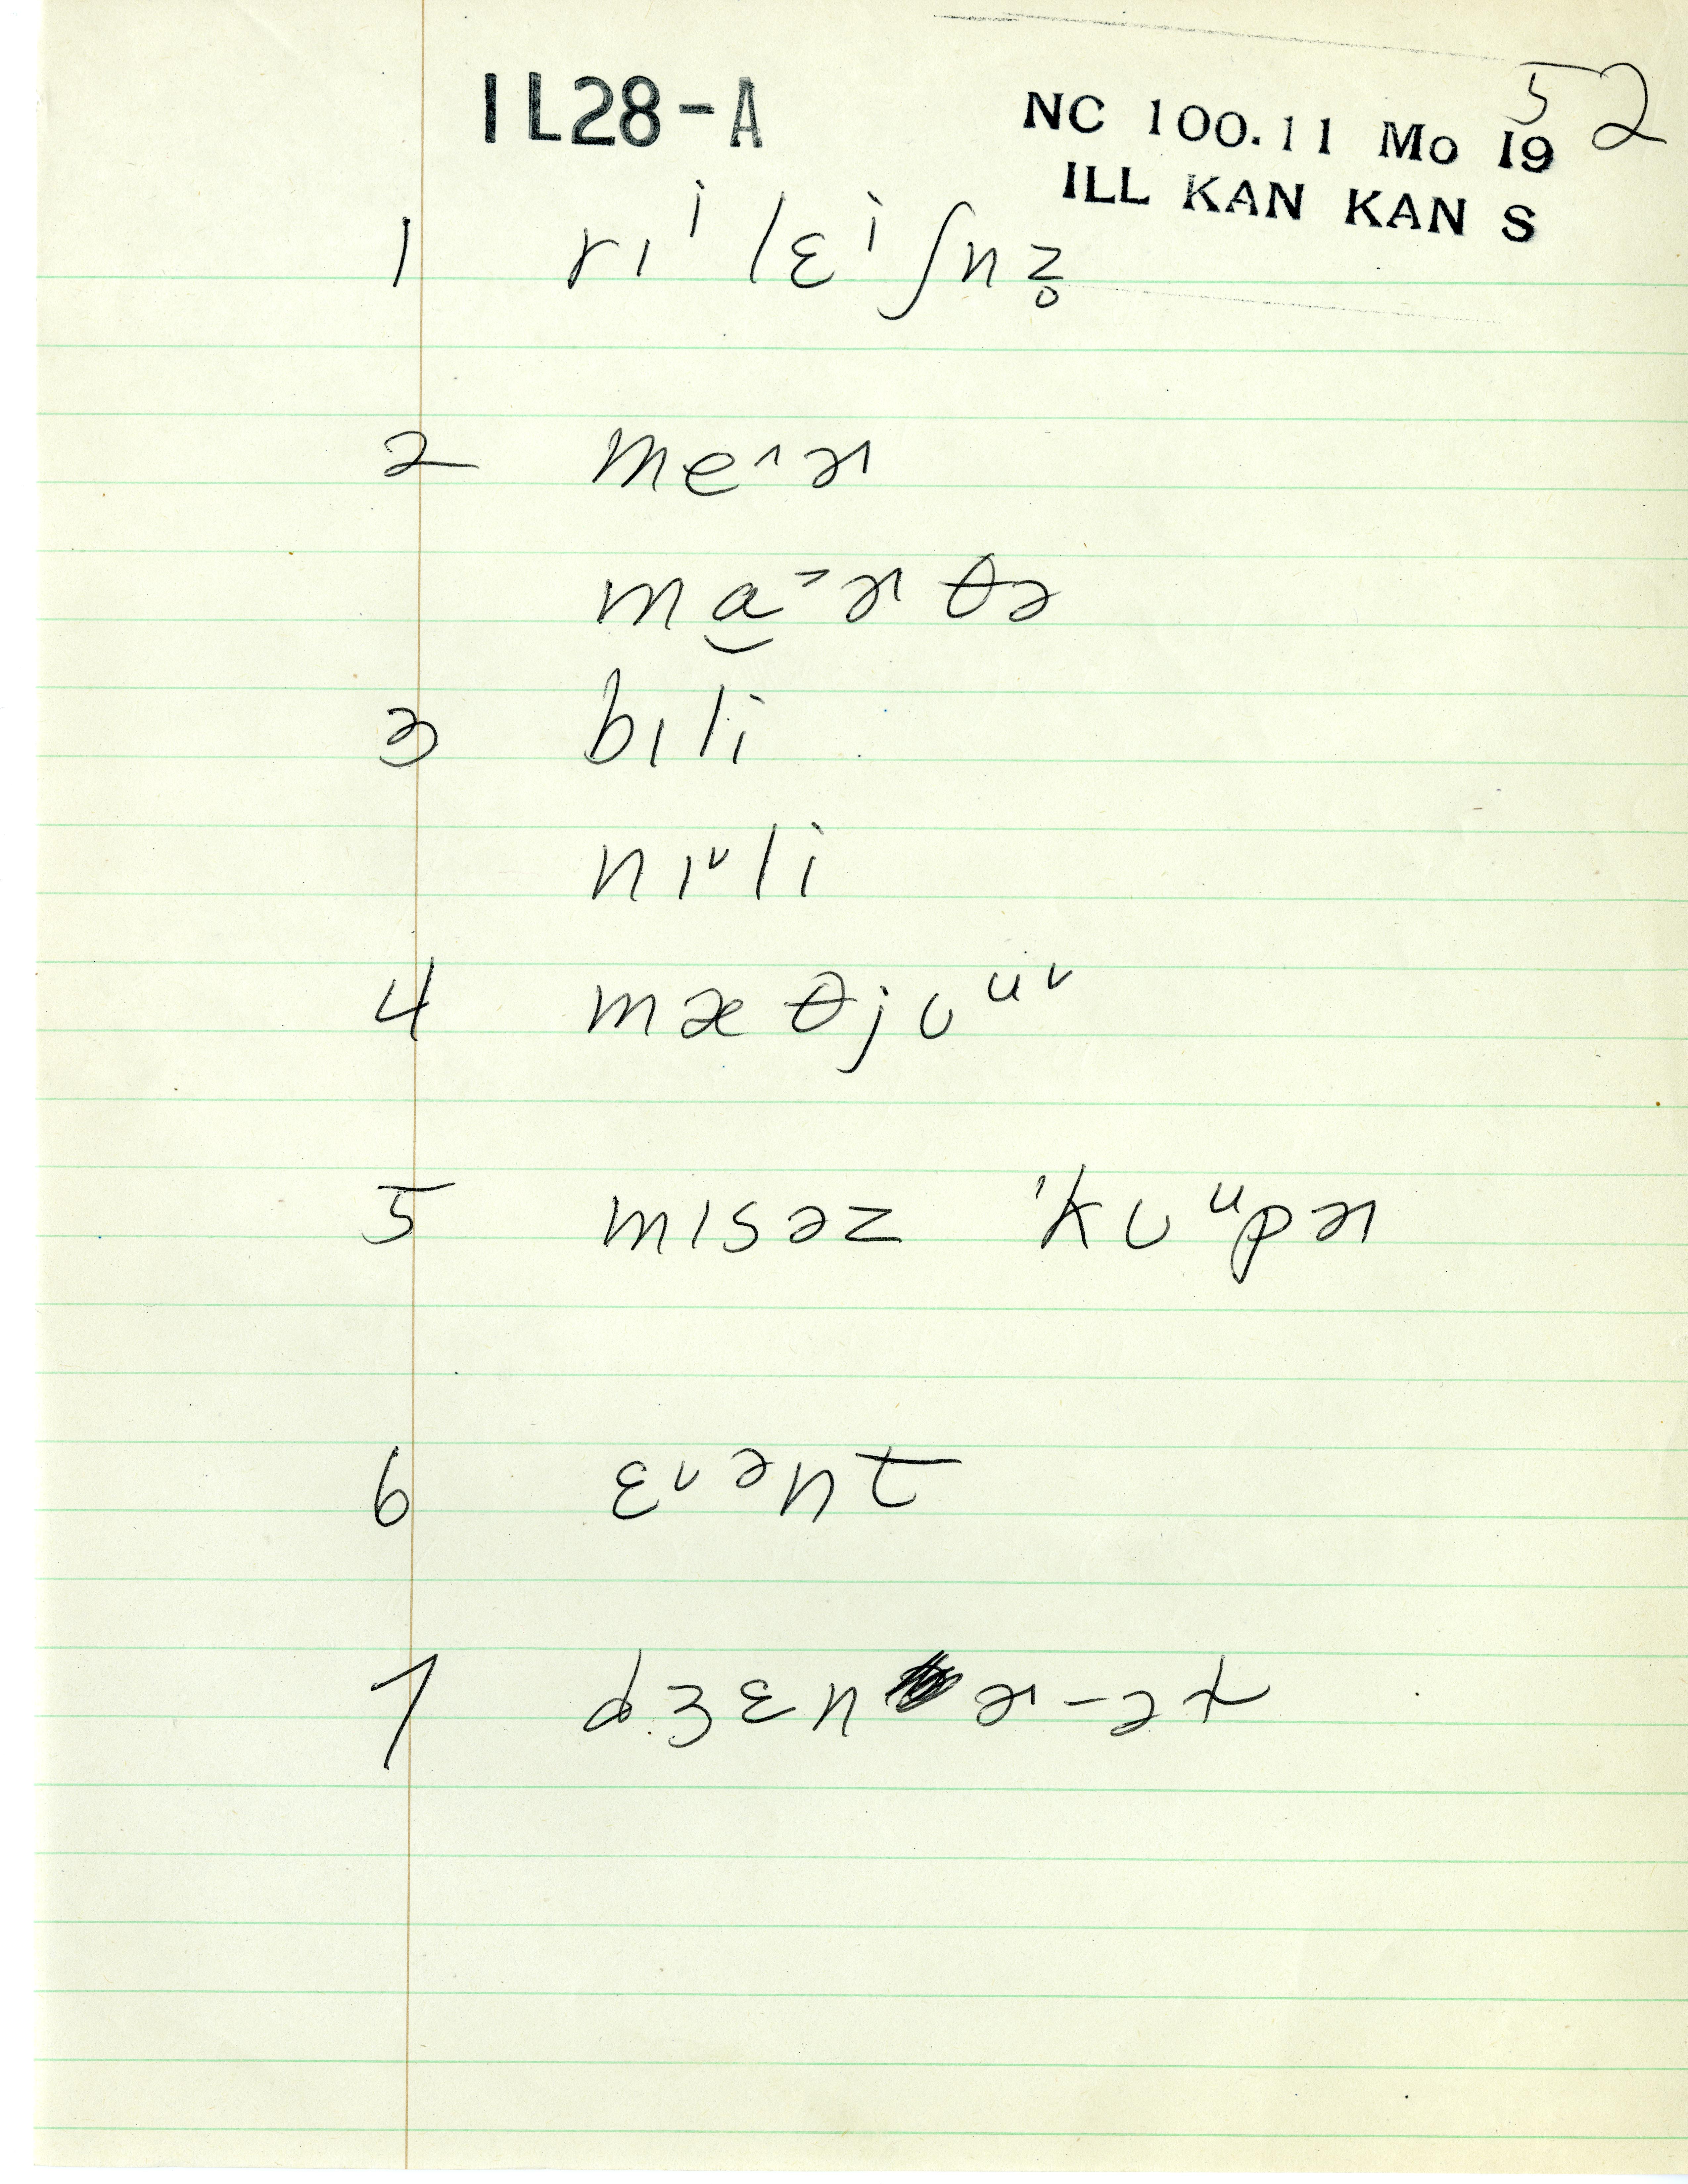 IL28-A
52
NC 100.11 Mo 19
ILL KAN KAN S
1 rɪⁱlɛⁱʃnz̥
2 me˄ɚ
ma̮˃ɚθə
3 bɪli
nɪ˅li
4 mæθjʊᵘ˅
5 mɪsəz ˈkʊᵘpɚ
6 ɛ˅ənt
7 dʒɛnɚ-ət